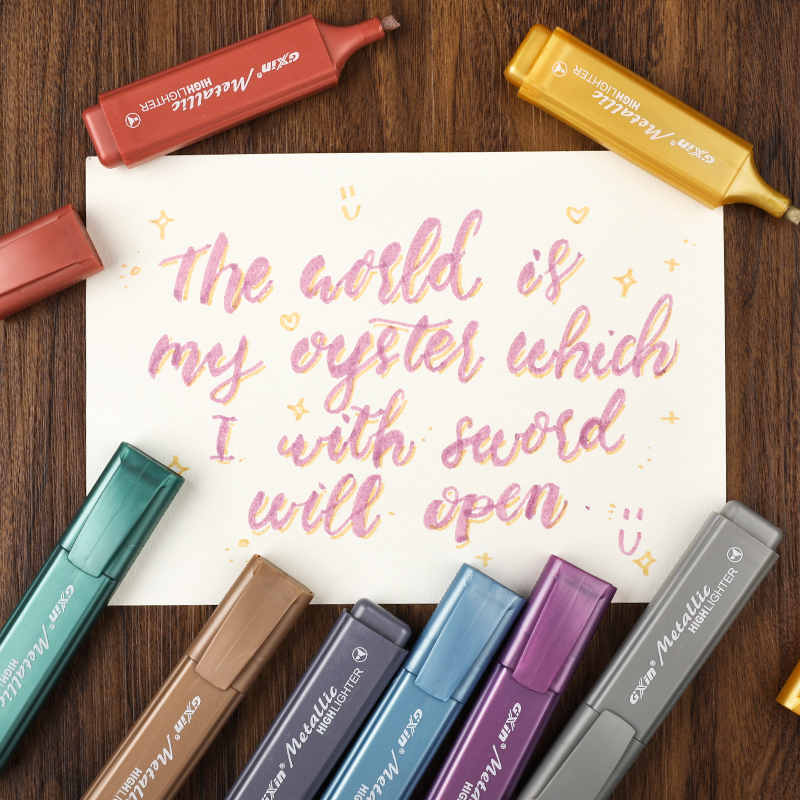 GXin® Metallic
HIGHLIGHTER
GXin® Metallic
HIGHLIGHTER
The world is
my oyster which
I with sword
will open
GXin® Metallic
HIGHLIGHTER
GXin® Metallic
HIGHLIGHTER
GXin® Metallic
HIGHLIGHTER
GXin® Metallic
HIGHLIGHTER
GXin® Metallic
HIGHLIGHTER
GXin® Metallic
HIGHLIGHTER